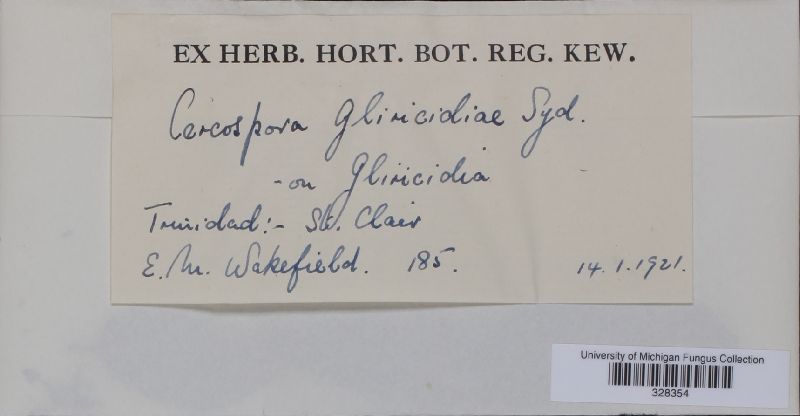 EX HERB. HORT. BOT. REG. KEW.
Cercospora Gliricidiae Syd.
- on Gliricidia
Trinidad:- St. Clair
E. M. Wakefield. 185. 14.1.1921.
University of Michigan Fungus Collection
328354